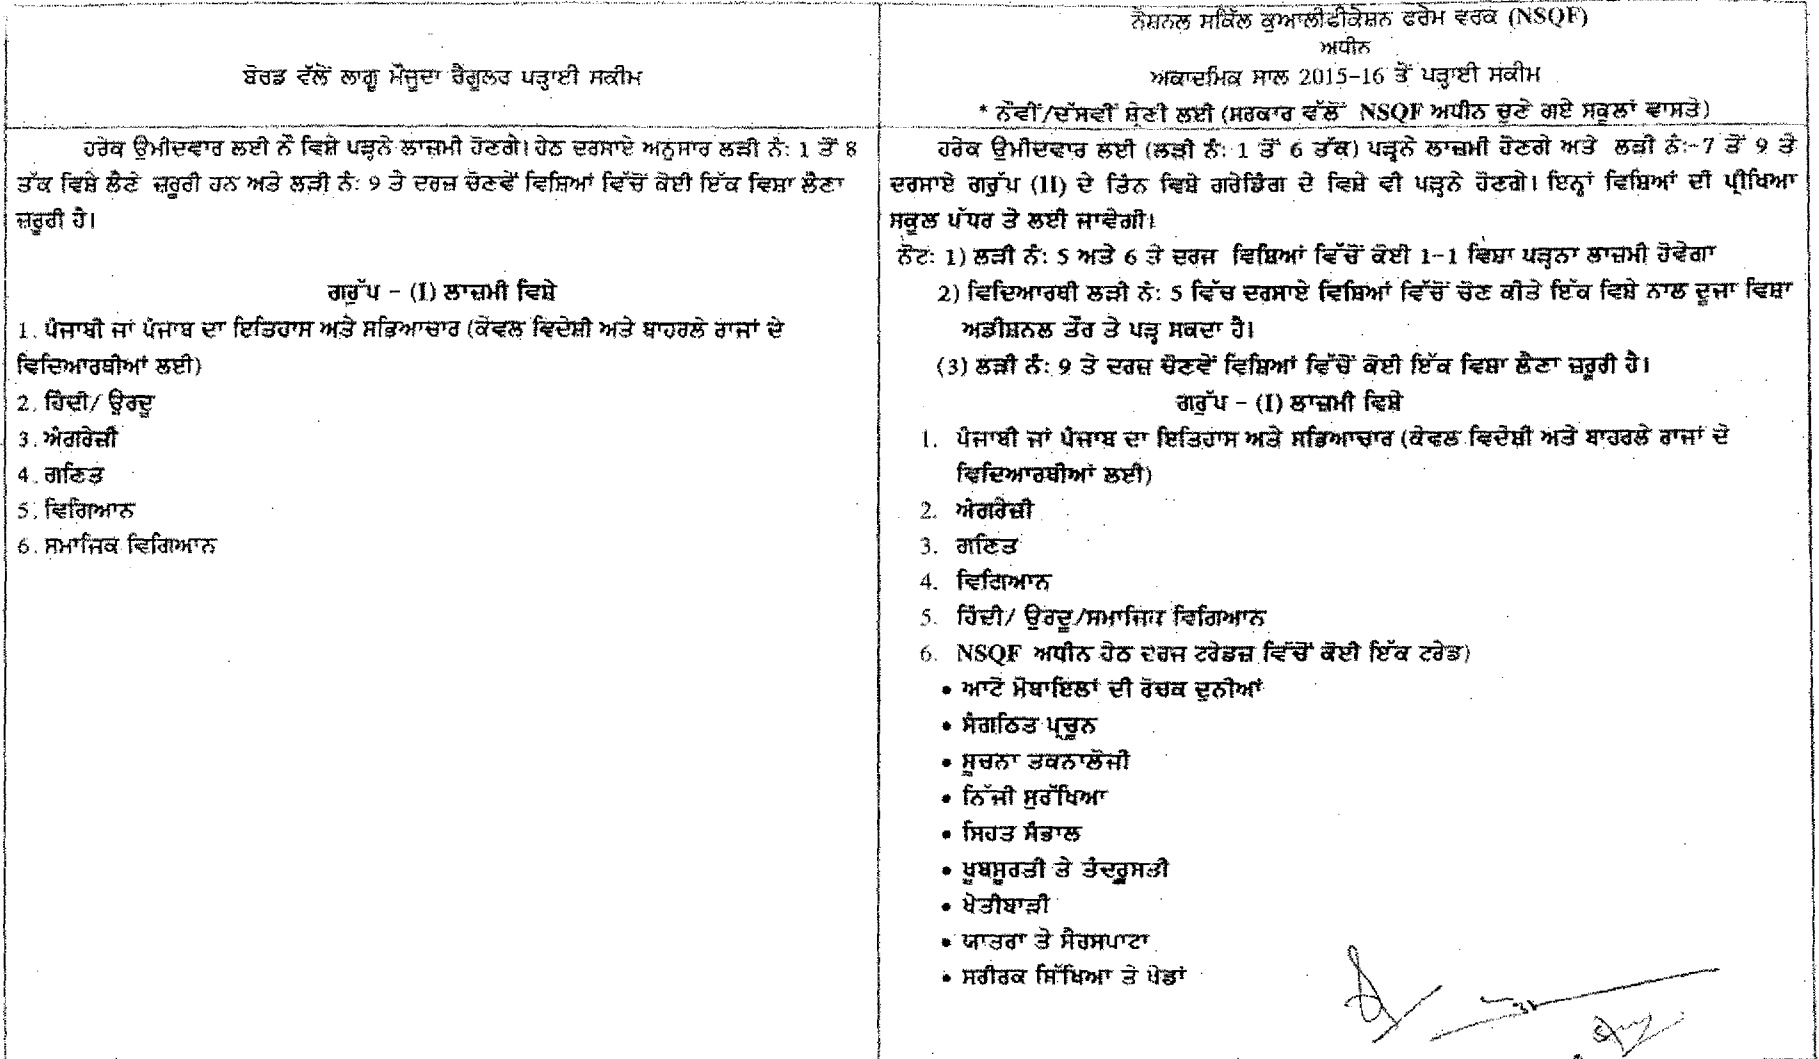 ਬੋਰਡ ਵੱਲੋਂ ਲਾਗੂ ਮੌਜੂਦਾ ਰੈਗੂਲਰ ਪੜ੍ਹਾਈ ਸਕੀਮ
ਹਰੇਕ ਉਮੀਦਵਾਰ ਲਈ ਨੌ ਵਿਸ਼ੇ ਪੜ੍ਹਨੇ ਲਾਜ਼ਮੀ ਹੋਣਗੇ। ਹੇਠ ਦਰਸਾਏ ਅਨੁਸਾਰ ਲੜੀ ਨੰ: 1 ਤੋਂ 8
ਤੱਕ ਵਿਸ਼ੇ ਲੈਣੇ ਜ਼ਰੂਰੀ ਹਨ ਅਤੇ ਲੜੀ ਨੰ: 9 ਤੇ ਦਰਜ ਚੋਣਵੇਂ ਵਿਸ਼ਿਆਂ ਵਿੱਚੋਂ ਕੋਈ ਇੱਕ ਵਿਸ਼ਾ ਲੈਣਾ
ਜ਼ਰੂਰੀ ਹੈ।
ਗਰੁੱਪ - (I) ਲਾਜ਼ਮੀ ਵਿਸ਼ੇ
1. ਪੰਜਾਬੀ ਜਾਂ ਪੰਜਾਬ ਦਾ ਇਤਿਹਾਸ ਅਤੇ ਸਭਿਆਚਾਰ (ਕੇਵਲ ਵਿਦੇਸ਼ੀ ਅਤੇ ਬਾਹਰਲੇ ਰਾਜਾਂ ਦੇ
ਵਿਦਿਆਰਥੀਆਂ ਲਈ)
2. ਹਿੰਦੀ/ ਉਰਦੂ
3. ਅੰਗਰੇਜ਼ੀ
4. ਗਣਿਤ
5. ਵਿਗਿਆਨ
6. ਸਮਾਜਿਕ ਵਿਗਿਆਨ
ਨੈਸ਼ਨਲ ਸਕਿੱਲ ਕੁਆਲੀਫੀਕੇਸ਼ਨ ਫਰੇਮ ਵਰਕ (NSQF)
ਅਧੀਨ
ਅਕਾਦਮਿਕ ਸਾਲ 2015-16 ਤੋਂ ਪੜ੍ਹਾਈ ਸਕੀਮ
* ਨੌਵੀਂ/ਦੱਸਵੀਂ ਸ਼੍ਰੇਣੀ ਲਈ (ਸਰਕਾਰ ਵੱਲੋਂ NSQF ਅਧੀਨ ਚੁਣੇ ਗਏ ਸਕੂਲਾਂ ਵਾਸਤੇ)
ਹਰੇਕ ਉਮੀਦਵਾਰ ਲਈ (ਲੜੀ ਨੰ: 1 ਤੋਂ 6 ਤੱਕ) ਪੜ੍ਹਨੇ ਲਾਜ਼ਮੀ ਹੋਣਗੇ ਅਤੇ ਲੜੀ ਨੰ:-7 ਤੋਂ 9 ਤੇ
ਦਰਸਾਏ ਗਰੁੱਪ (II) ਦੇ ਤਿੰਨ ਵਿਸ਼ੇ ਗਰੇਡਿੰਗ ਦੇ ਵਿਸ਼ੇ ਵੀ ਪੜ੍ਹਨੇ ਹੋਣਗੇ। ਇਨ੍ਹਾਂ ਵਿਸ਼ਿਆਂ ਦੀ ਪ੍ਰੀਖਿਆ
ਸਕੂਲ ਪੱਧਰ ਤੇ ਲਈ ਜਾਵੇਗੀ।
ਨੋਟ: 1) ਲੜੀ ਨੰ: 5 ਅਤੇ 6 ਤੇ ਦਰਜ ਵਿਸ਼ਿਆਂ ਵਿੱਚੋਂ ਕੋਈ 1-1 ਵਿਸ਼ਾ ਪੜ੍ਹਨਾ ਲਾਜ਼ਮੀ ਹੋਵੇਗਾ
2) ਵਿਦਿਆਰਥੀ ਲੜੀ ਨੰ: 5 ਵਿੱਚ ਦਰਸਾਏ ਵਿਸ਼ਿਆਂ ਵਿੱਚੋਂ ਚੋਣ ਕੀਤੇ ਇੱਕ ਵਿਸ਼ੇ ਨਾਲ ਦੂਜਾ ਵਿਸ਼ਾ
ਅਡੀਸ਼ਨਲ ਤੌਰ ਤੇ ਪੜ੍ਹ ਸਕਦਾ ਹੈ।
(3) ਲੜੀ ਨੰ: 9 ਤੇ ਦਰਜ਼ ਚੋਣਵੇਂ ਵਿਸ਼ਿਆਂ ਵਿੱਚੋਂ ਕੋਈ ਇੱਕ ਵਿਸ਼ਾ ਲੈਣਾ ਜ਼ਰੂਰੀ ਹੈ।
ਗਰੁੱਪ - (I) ਲਾਜ਼ਮੀ ਵਿਸ਼ੇ
1. ਪੰਜਾਬੀ ਜਾਂ ਪੰਜਾਬ ਦਾ ਇਤਿਹਾਸ ਅਤੇ ਸਭਿਆਚਾਰ (ਕੇਵਲ ਵਿਦੇਸ਼ੀ ਅਤੇ ਬਾਹਰਲੇ ਰਾਜਾਂ ਦੇ
ਵਿਦਿਆਰਥੀਆਂ ਲਈ)
2. ਅੰਗਰੇਜ਼ੀ
3. ਗਣਿਤ
4. ਵਿਗਿਆਨ
5. ਹਿੰਦੀ/ ਉਰਦੂ/ਸਮਾਜਿਕ ਵਿਗਿਆਨ
6. NSQF ਅਧੀਨ ਹੇਠ ਦਰਜ ਟਰੇਡਜ਼ ਵਿੱਚੋਂ ਕੋਈ ਇੱਕ ਟਰੇਡ)
• ਆਟੋ ਮੋਬਾਇਲਾਂ ਦੀ ਰੋਚਕ ਦੁਨੀਆਂ
• ਸੰਗਠਿਤ ਪ੍ਰਚੂਨ
• ਸੂਚਨਾ ਤਕਨਾਲੋਜੀ
• ਨਿੱਜੀ ਸੁਰੱਖਿਆ
• ਸਿਹਤ ਸੰਭਾਲ
• ਖੂਬਸੂਰਤੀ ਤੇ ਤੰਦਰੂਸਤੀ
• ਖੇਤੀਬਾੜੀ
• ਯਾਤਰਾ ਤੇ ਸੈਰਸਪਾਟਾ
• ਸਰੀਰਕ ਸਿੱਖਿਆ ਤੇ ਖੇਡਾਂ